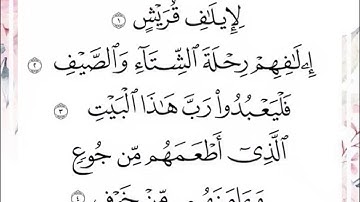 لِإِيلَٰفِ قُرَيْشٍ ١
إِۦلَٰفِهِمْ رِحْلَةَ ٱلشِّتَآءِ وَٱلصَّيْفِ ٢
فَلْيَعْبُدُوا۟ رَبَّ هَٰذَا ٱلْبَيْتِ ٣
ٱلَّذِىٓ أَطْعَمَهُم مِّن جُوعٍ
وَءَامَنَهُم مِّنْ خَوْفٍۭ ٤